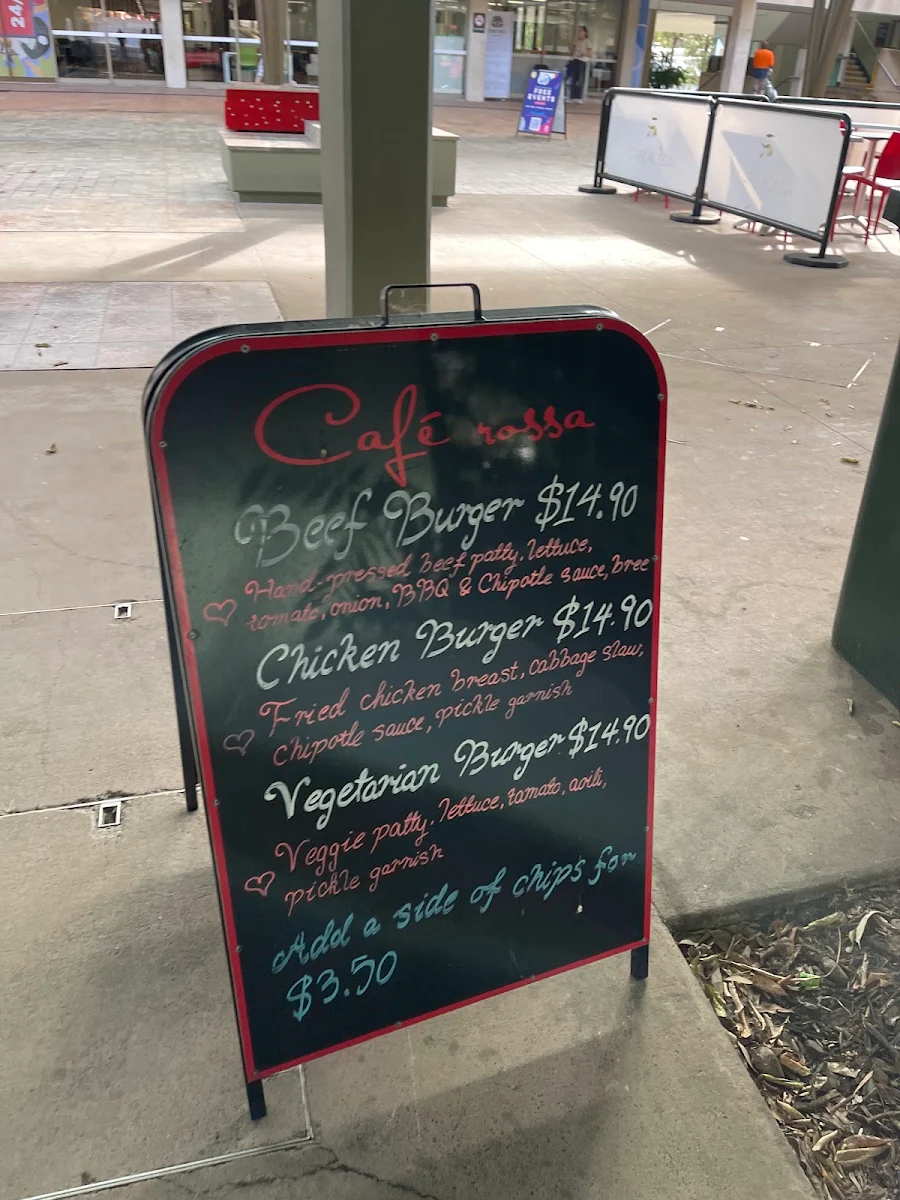 24/
FREE
EVENTS
Café rossa
Beef Burger $14.90
Hand-pressed beef patty, lettuce,
tomato, onion, BBQ & Chipotle sauce, bree
Chicken Burger $14.90
Fried chicken breast, cabbage slaw,
chipotle sauce, pickle garnish
Vegetarian Burger $14.90
Veggie patty, lettuce, tomato, aoili,
pickle garnish
Add a side of chips for
$3.50